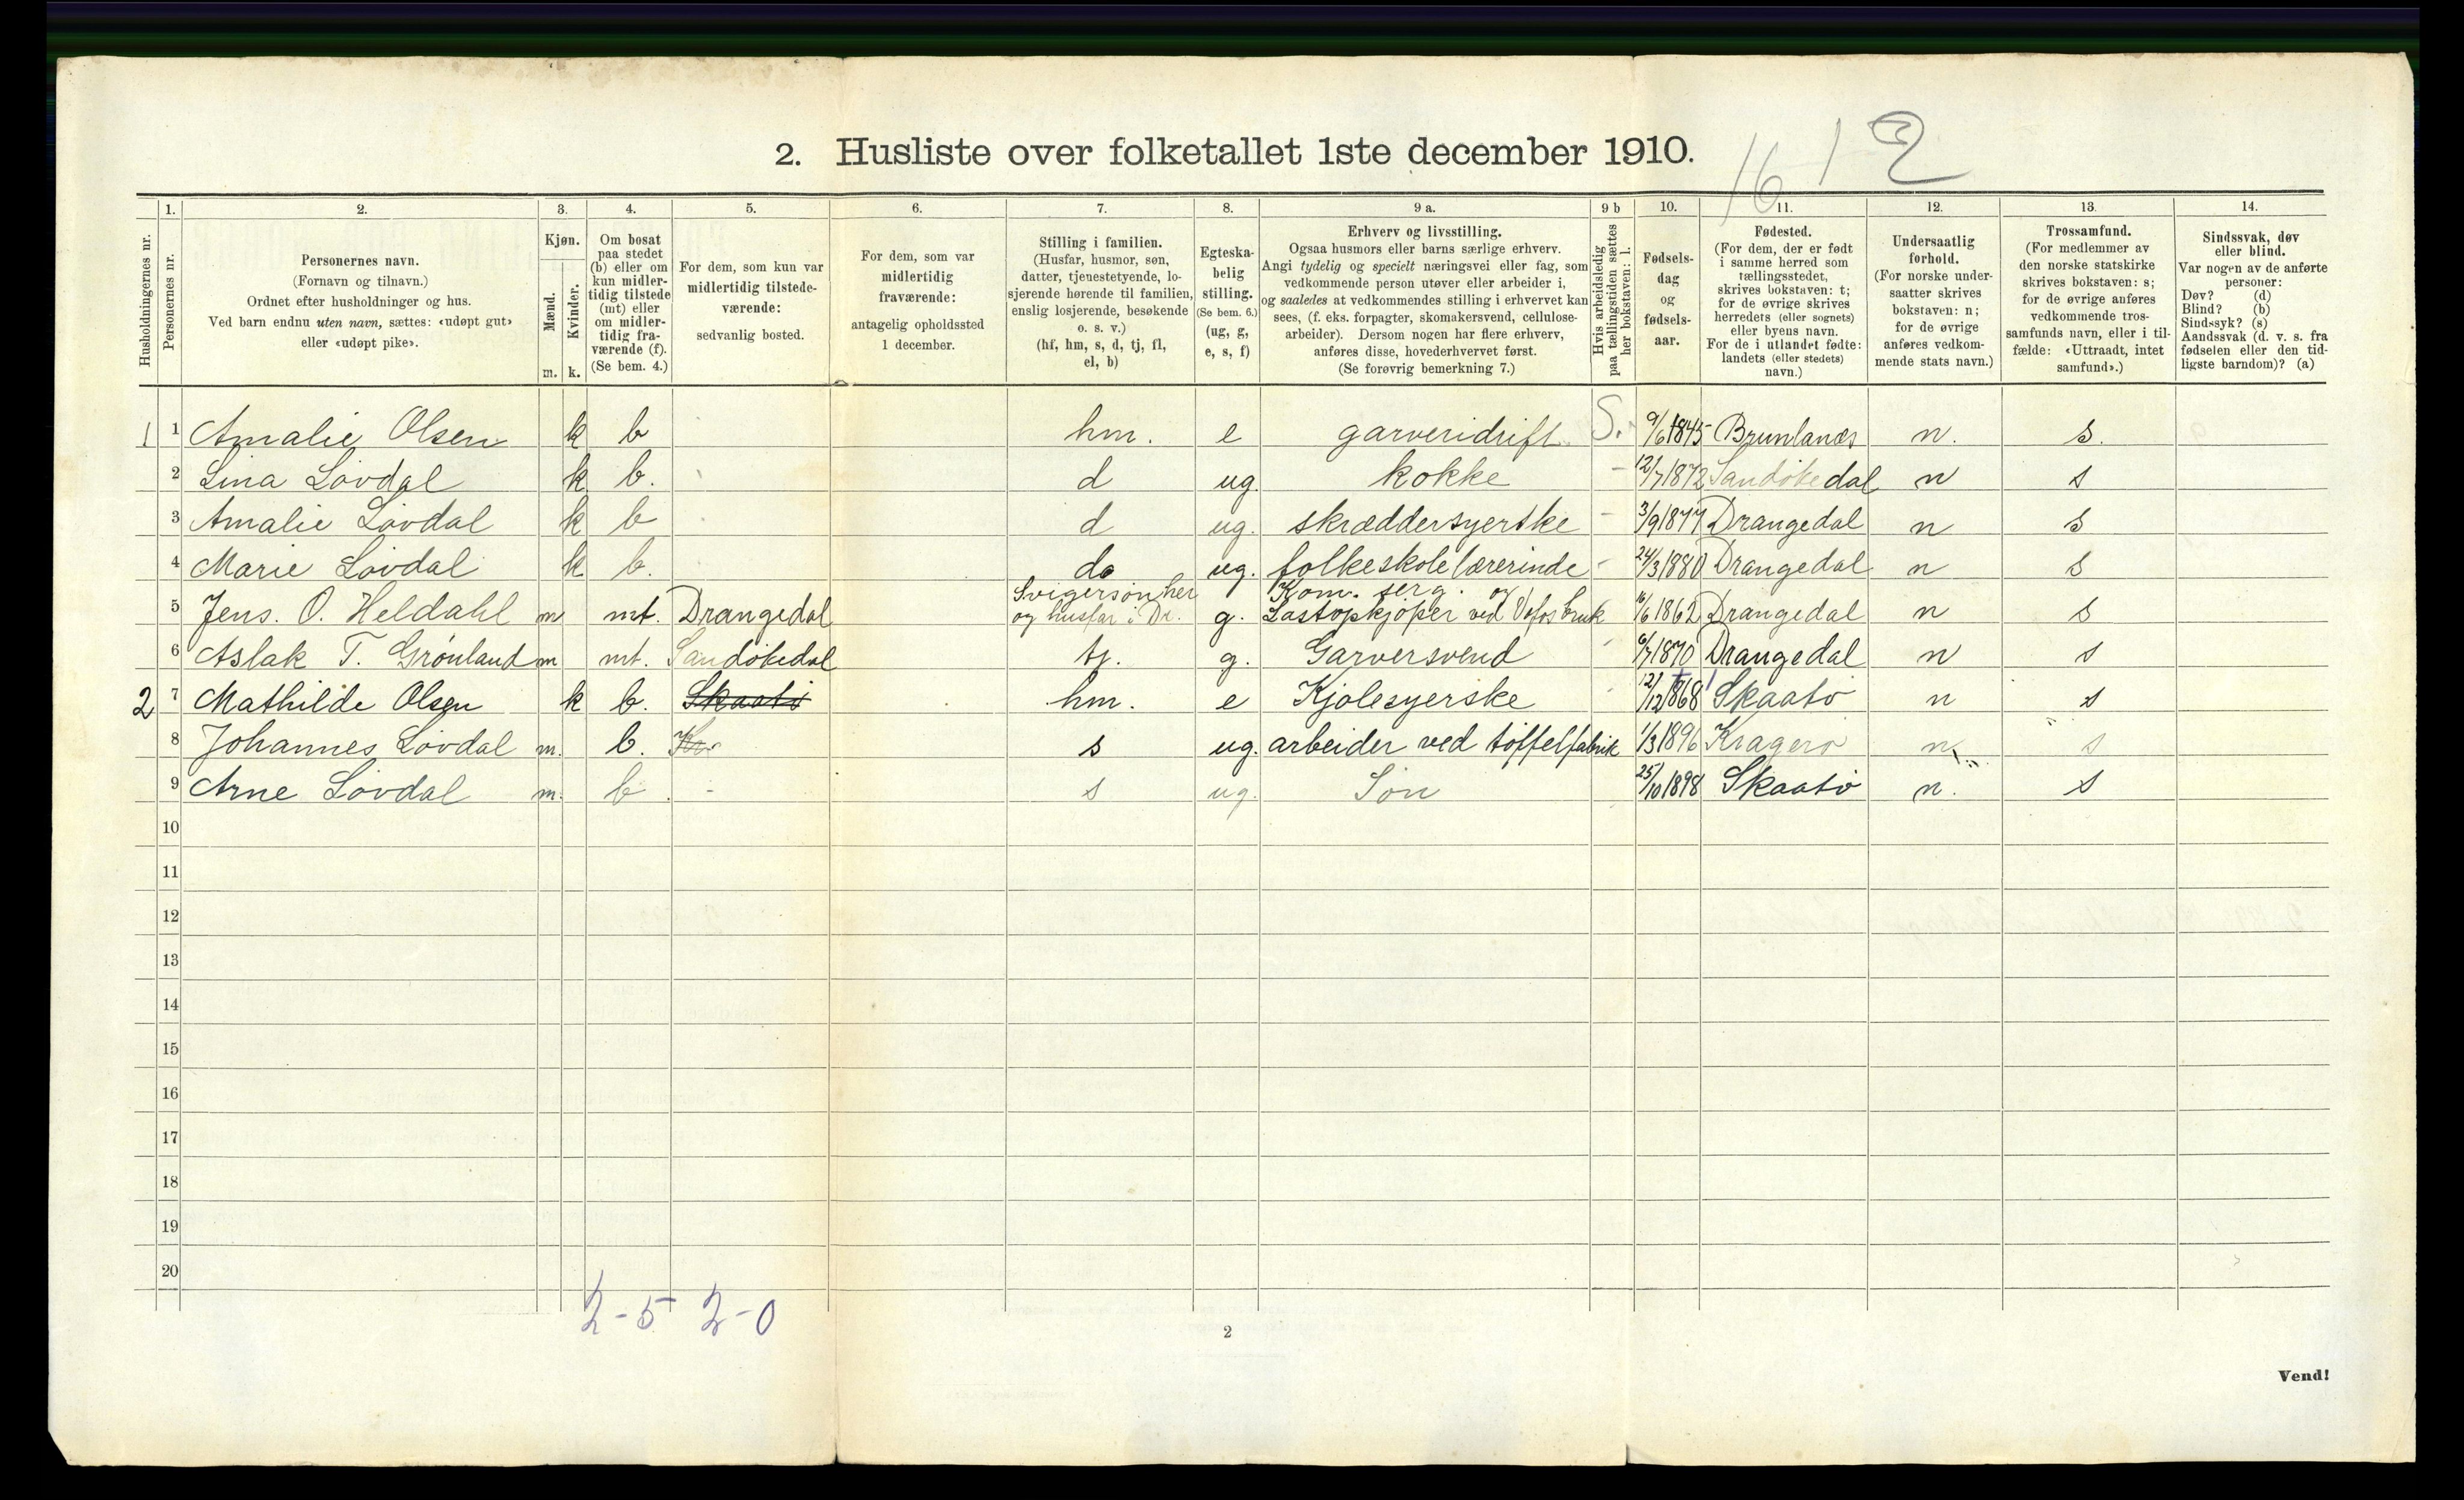 2. Husliste over folketallet 1ste december 1910.
16 1 2
Husholdningernes nr.
1.
Personernes nr.
2.
Personernes navn.
(Fornavn og tilnavn.)
Ordnet efter husholdninger og hus.
Ved barn endnu uten navn, sættes: «udøpt gut»
eller «udøpt pike».
3.
Kjøn.
Mænd.
Kvinder.
m. k.
4.
Om bosat
paa stedet
(b) eller om
kun midler-
tidig tilstede
(mt) eller
om midler-
tidig fra-
værende (f).
(Se bem. 4.)
5.
For dem, som kun var
midlertidig tilstede-
værende:
sedvanlig bosted.
6.
For dem, som var
midlertidig
fraværende:
antagelig opholdssted
1 december.
7.
Stilling i familien.
(Husfar, husmor, søn,
datter, tjenestetyende, lo-
sjerende hørende til familien,
enslig losjerende, besøkende
o. s. v.)
(hf, hm, s, d, tj, fl,
el, b)
8.
Egteska-
belig
stilling.
(Se bem. 6.)
(ug, g,
e, s, f)
9 a.
Erhverv og livsstilling.
Ogsaa husmors eller barns særlige erhverv.
Angi tydelig og specielt næringsvei eller fag, som
vedkommende person utøver eller arbeider i,
og saaledes at vedkommendes stilling i erhvervet kan
sees, (f. eks. forpagter, skomakersvend, cellulose-
arbeider). Dersom nogen har flere erhverv,
anføres disse, hovederhvervet først.
(Se forøvrig bemerkning 7.)
9 b
Hvis arbeidsledig
paa tællingstiden sættes
her bokstaven: l.
10.
Fødsels-
dag
og
fødsels-
aar.
11.
Fødested.
(For dem, der er født
i samme herred som
tællingsstedet,
skrives bokstaven: t;
for de øvrige skrives
herredets (eller sognets)
eller byens navn.
For de i utlandet fødte:
landets (eller stedets)
navn.)
12.
Undersaatlig
forhold.
(For norske under-
saatter skrives
bokstaven: n;
for de øvrige
anføres vedkom-
mende stats navn.)
13.
Trossamfund.
(For medlemmer av
den norske statskirke
skrives bokstaven: s;
for de øvrige anføres
vedkommende tros-
samfunds navn, eller i til-
fælde: «Uttraadt, intet
samfund».)
14.
Sindssvak, døv
eller blind.
Var nogen av de anførte
personer:
Døv? (d)
Blind? (b)
Sindssyk? (s)
Aandssvak (d. v. s. fra
fødselen eller den tid-
ligste barndom)? (a)
1 1 Amalie Olsen k b hm. e garveridrift S. 9/6 1845 Brunlanæs n. s.
2 Lina Lövdal k b. d ug. kokke - 12/7 1872 Sandökedal n s
3 Amalie Lövdal k b d ug. skræddersyerske - 3/9 1877 Drangedal n s
4 Marie Lövdal k b. do ug. folkeskolelærerinde - 24/3 1880 Drangedal n s
Svigersön her Kom. serg. og
5 Jens. O. Heldahl m mt. Drangedal og husfar i Dr. g. Lastopkjöper ved Vafos bruk 16/6 1862 Drangedal n s
6 Aslak T. Grönland m mt. Sandökedal tj. g. Garversvend 6/7 1870 Drangedal n s
2 7 Mathilde Olsen k b. Skaatö hm. e Kjolesyerske 12/12 1868 Skaatö n s
8 Johannes Lövdal m. b. s ug. arbeider ved töffelfabrik 1/3 1896 Kragerö n s
9 Arne Lövdal m. b. - s ug. Sön 25/10 1898 Skaatö n. s
10
11
12
13
14
15
16
17
18
19
20
2-5 2-0
2
Vend!